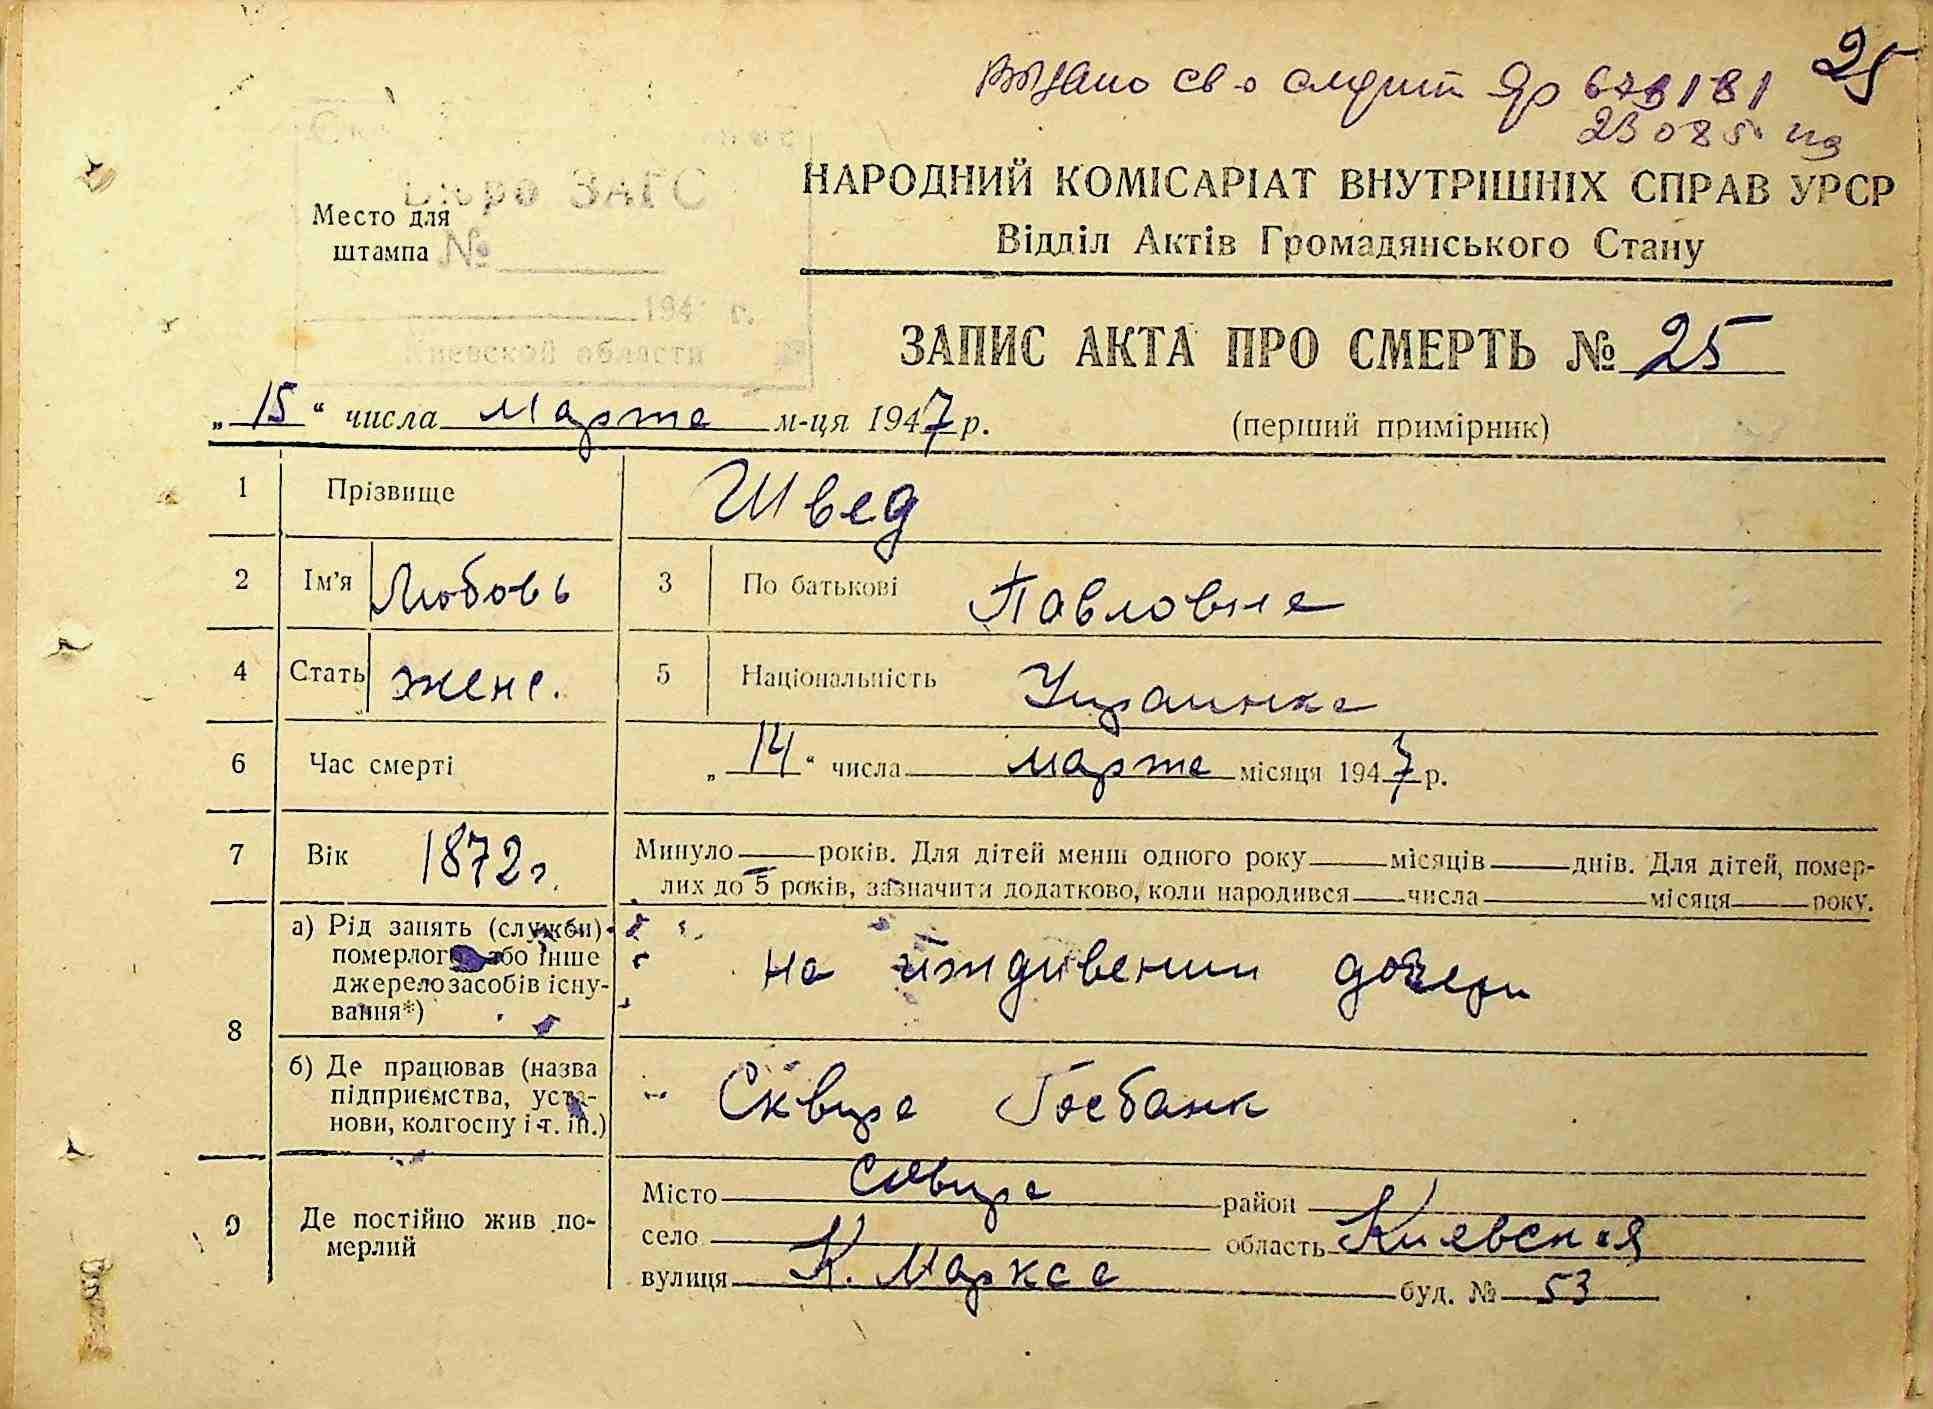 25
Видано св-о
23 08 5
НАРОДНИЙ КОМІСАРІАТ ВНУТРІШНІХ СПРАВ УРСР
Відділ Актів Громадянського Стану
Бюро ЗАГС
Место для
штампа №
194 г.
Киевской области
ЗАПИС АКТА ПРО СМЕРТЬ № 25
„15“ числа Марта м-ця 1947 р.
(перший примірник)
1 Прізвище Швед
2 Ім'я Любовь 3 По батькові Павловна
4 Стать женс. 5 Національність Украинка
6 Час смерті „14“ числа марта місяця 1947 р.
7 Вік 1872 г. Минуло років. Для дітей менш одного року місяців днів. Для дітей, помер-
лих до 5 років, зазначити додатково, коли народився числа місяця року.
8 а) Рід занять (служби)
померлого або інше
джерело засобів існу-
вання*)
на иждивении дочери
б) Де працював (назва
підприємства, уста-
нови, колгоспу і т. п.)
Сквира Госбанк
9 Де постійно жив по-
мерлий
Місто Сквира район
село область Киевская
вулиця К. Маркса буд. № 53